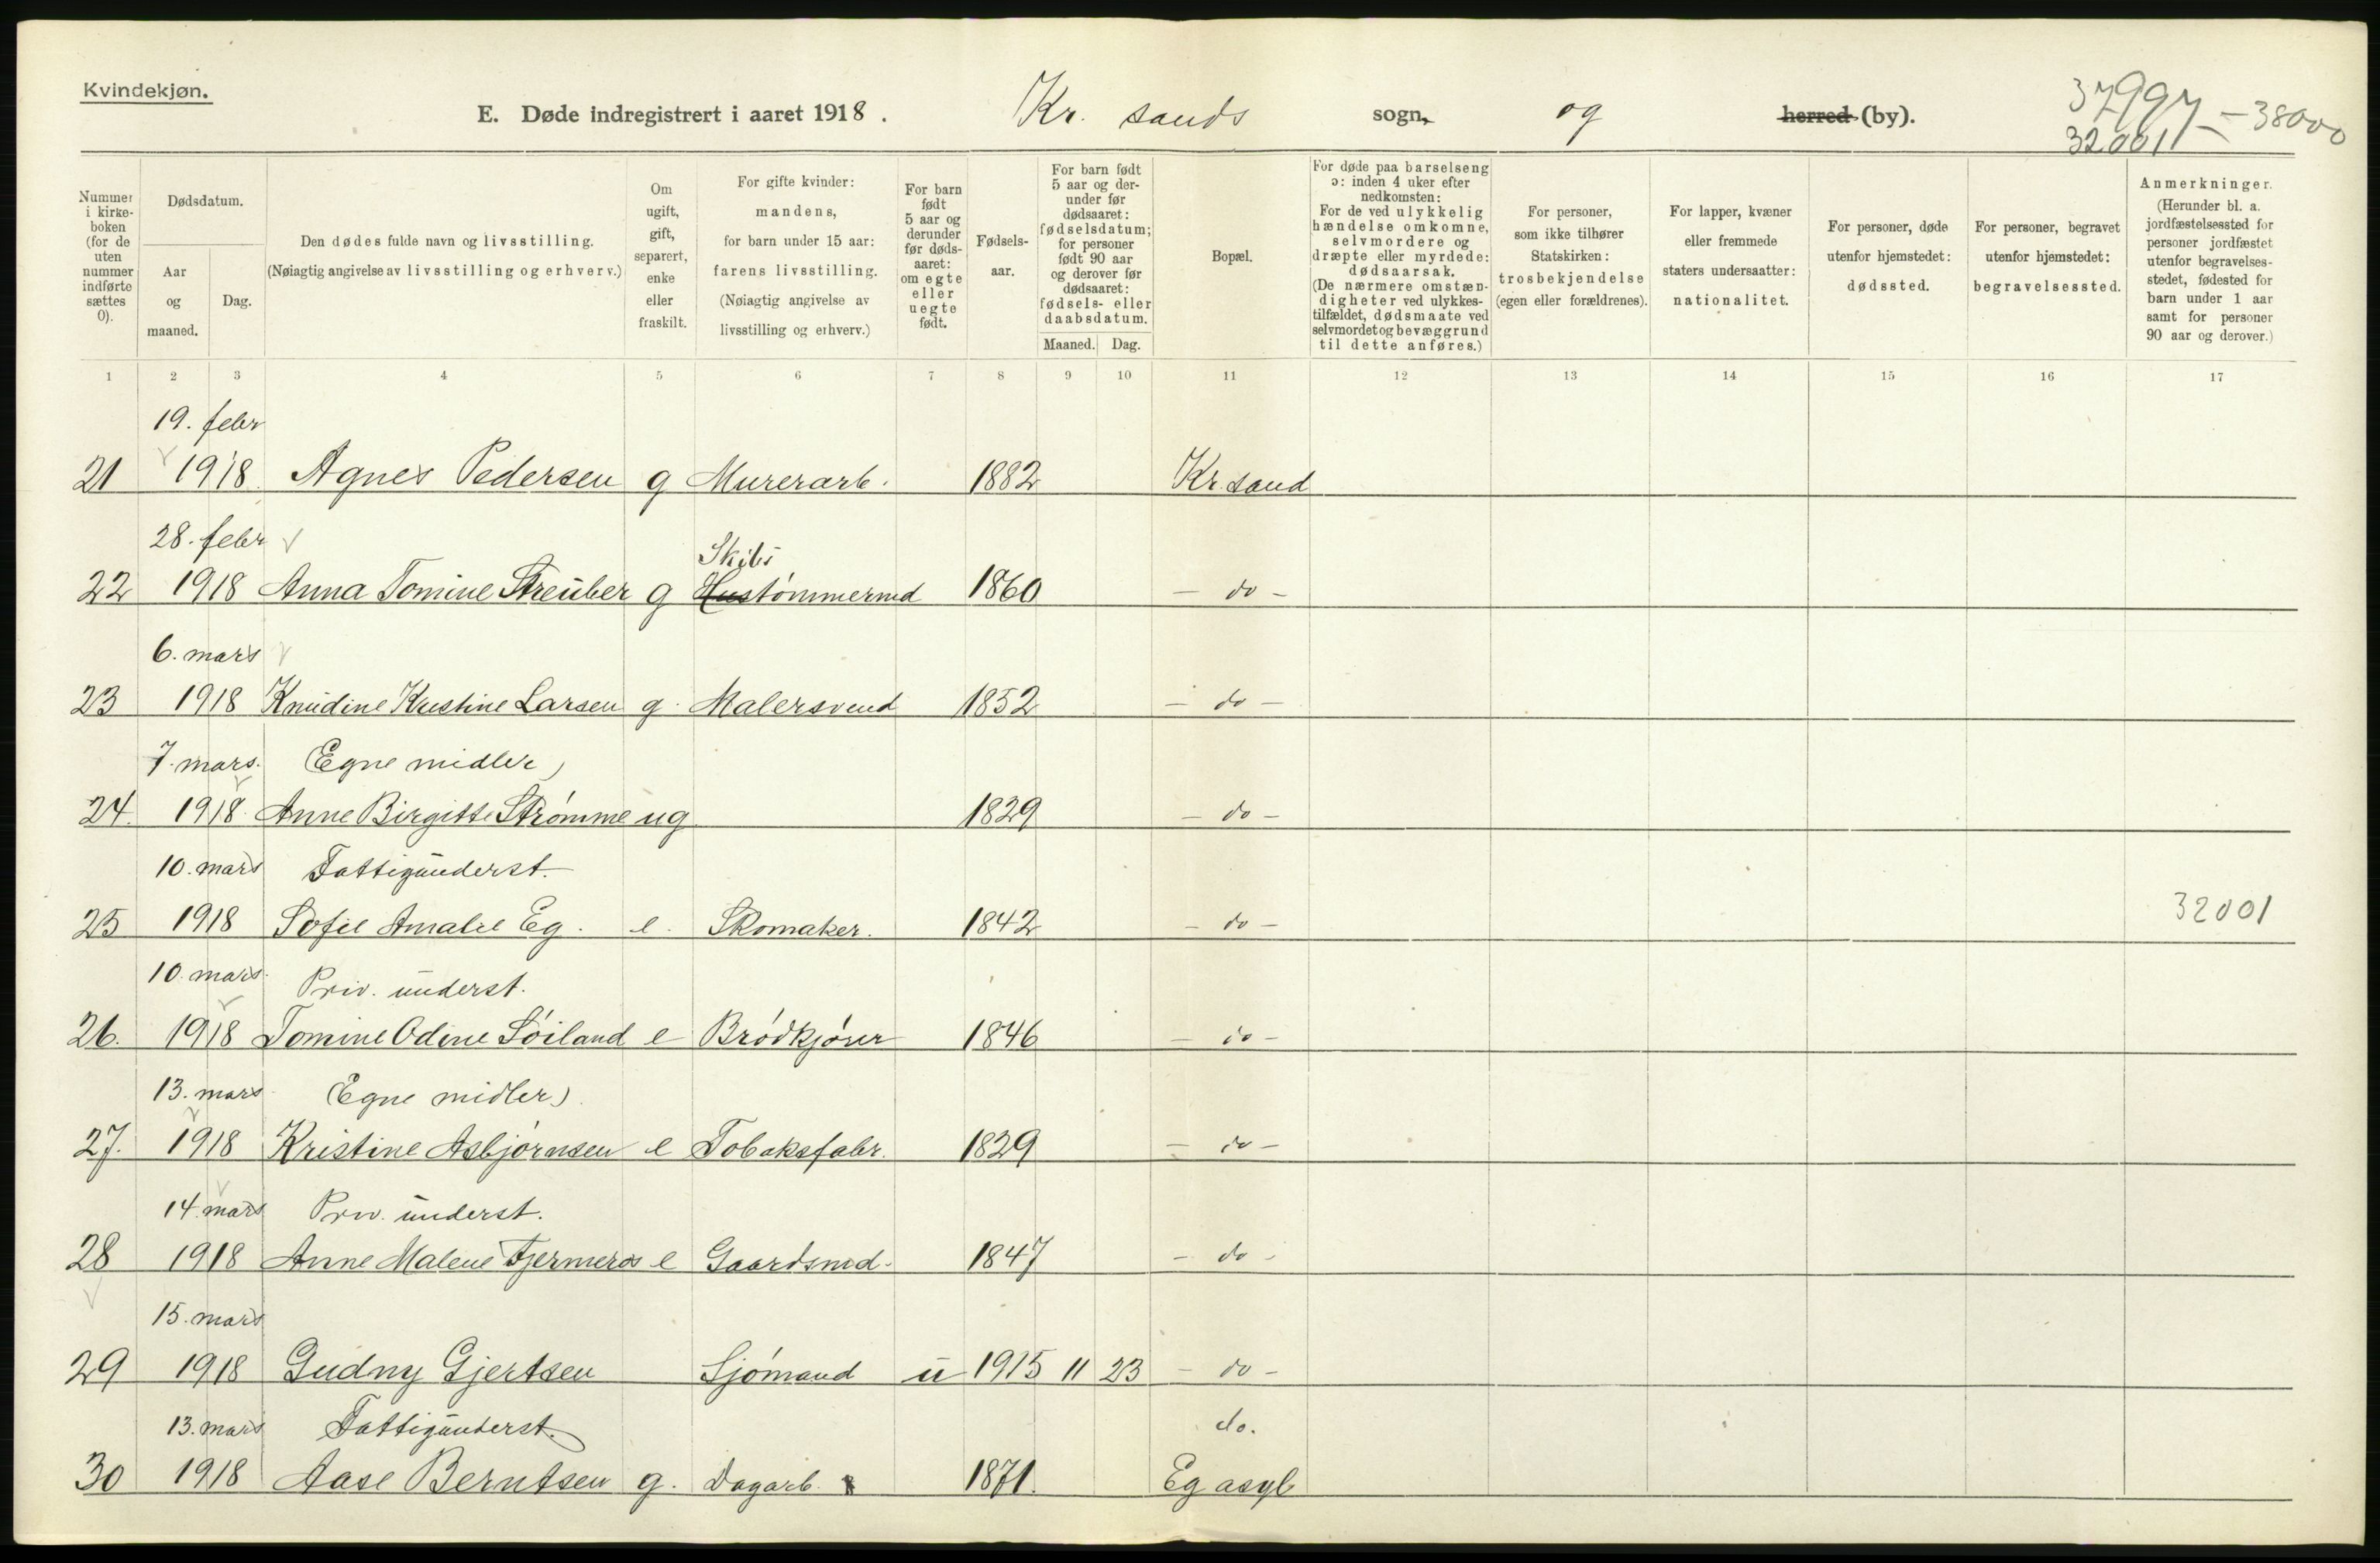 Kvindekjøn.
E. Døde indregistrert i aaret 1918. Kr. sands sogn, og herred (by).
37997 = 38000
32001
Nummer i kirkeboken (for de uten nummer indførte sættes 0).
Dødsdatum.
Aar og maaned.
Dag.
Den dødes fulde navn og livsstilling.
(Nøiagtig angivelse av livsstilling og erhverv.)
Om ugift, gift, separert, enke eller fraskilt.
For gifte kvinder: mandens, for barn under 15 aar: farens livsstilling. (Nøiagtig angivelse av livsstilling og erhverv.)
For barn født 5 aar og derunder før dødsaaret: om egte eller uegte født.
Fødselsaar.
For barn født 5 aar og derunder før dødsaaret: fødselsdatum; for personer født 90 aar og derover før dødsaaret: fødsels- eller daabsdatum.
Maaned. Dag.
Bopæl.
For døde paa barselseng ɔ: inden 4 uker efter nedkomsten: For de ved ulykkelig hændelse omkomne, selvmordere og dræpte eller myrdede: dødsaarsak. (De nærmere omstændigheter ved ulykkestilfældet, dødsmaate ved selvmordet og bevæggrund til dette anføres.)
For personer, som ikke tilhører Statskirken: trosbekjendelse (egen eller forældrenes).
For lapper, kvæner eller fremmede staters undersaatter: nationalitet.
For personer, døde utenfor hjemstedet: dødssted.
For personer, begravet utenfor hjemstedet: begravelsessted.
Anmerkninger. (Herunder bl. a. jordfæstelsessted for personer jordfæstet utenfor begravelsesstedet, fødested for barn under 1 aar samt for personer 90 aar og derover.)
1 2 3 4 5 6 7 8 9 10 11 12 13 14 15 16 17
19. febr
21 1918 Agnes Pedersen g Murerarb. 1882 Kr. sand
28. febr Skibs
22 1918 Anna Tomine Streuber g Hustømmermd 1860 - do -
6. mars
23 1918 Knudine Kristine Larsen g. Malersvend 1852 - do -
7. mars. (Egne midler)
24. 1918 Anne Birgitte Strømme ug 1829 - do -
10. mars Fattigunderst.
25 1918 Sofie Amalie Eg. e. Skomaker. 1842 - do - 32001
10. mars. Priv. underst.
26. 1918 Tomine Odine Søiland e Brødkjører 1846 - do -
13. mars (Egne midler)
27. 1918 Kristine Asbjørnsen e Tobaksfabr. 1829 - do -
14. mars Priv. underst.
28 1918 Anne Malene Tjermeros e Gaardsmd. 1847 - do -
15. mars
29 1918 Gudny Gjertsen Sjømand u 1915 11 23 - do -
13. mars Fattigunderst. do.
30 1918 Aase Berntsen g. Dagarb. 1871. Eg asyl